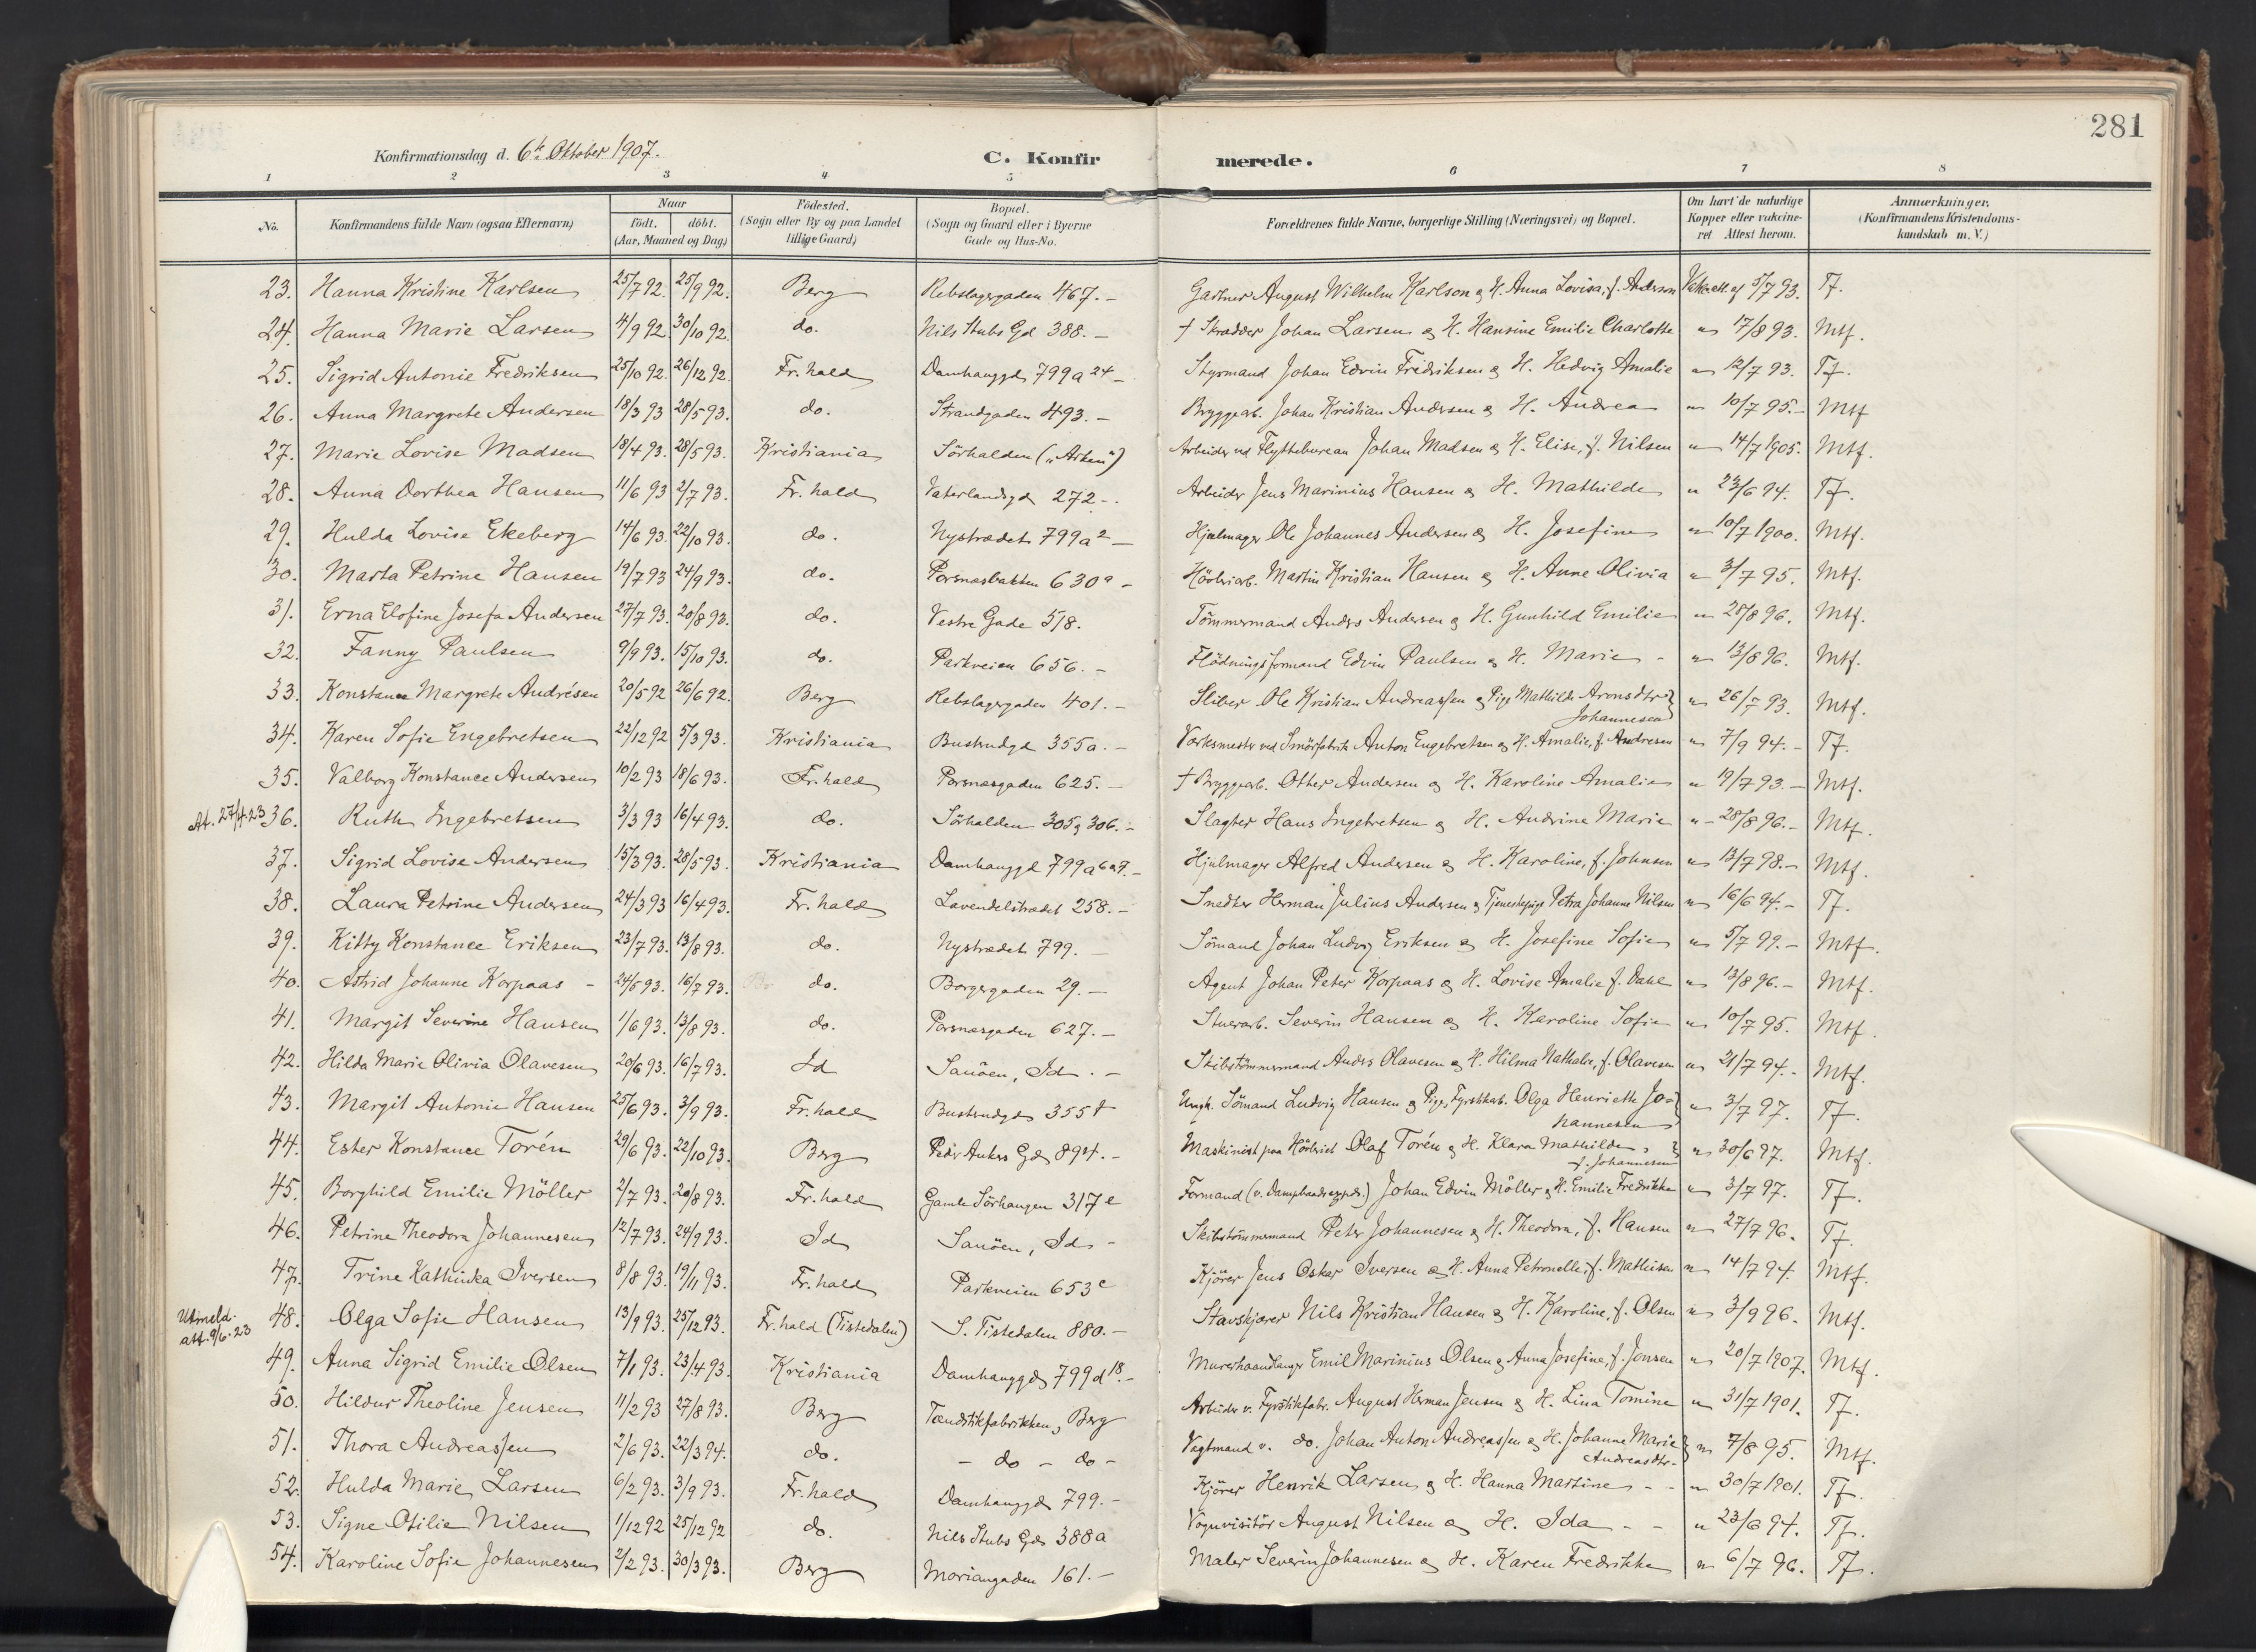 281
Konfirmationsdag d. 6te Oktober 1907. C. Konfirmerede.
1 2 3 4 5 6 7 8
No. Konfirmandens fulde Navn (ogsaa Efternavn) Naar födt. döbt. (Aar, Maaned og Dag) Födested. (Sogn eller By og paa Landet tillige Gaard) Bopæl. (Sogn og Gaard eller i Byerne Gade og Hus-No. Forældrenes fulde Navne, borgerlige Stilling (Næringsvei) og Bopæl. Om havt de naturlige Kopper eller vakcineret Attest herom. Anmærkninger. (Konfirmandens Kristendomskundskab m. V.)
23. Hanna Kristine Karlsen 25/7 92. 25/9 92. Berg Rebslagergaden 467. – Gartner August Wilhelm Karlson og H. Anna Lovisa, f. Anderson Vakc.att. af 5/7 93. Tf.
24. Hanna Marie Larsen 4/9 92. 30/10 92. do. Nils Stubs Gd 388. – † Skrædder Johan Larsen og H. Hansine Emilie Charlotte " 17/8 93. Mtf.
25. Sigrid Antonie Fredriksen 25/10 92. 26/12 92. Fr.hald Damhauggd. 799a 24 – Styrmand Johan Edvin Fredriksen og H. Hedvig Amalie " 12/7 93. Tf.
26. Anna Margrete Andersen 18/3 93 28/5 93. do. Strandgaden 493. – Bryggearb. Johan Kristian Andersen og H. Andrea " 10/7 95. – Mtf
27. Marie Lovise Madsen 18/4 93. 28/5 93. Kristiania Sörhalden ("Arken") Arbeider ved Flyttebureau Johan Madsen og H. Elise, f. Nilsen " 14/7 1905. Mtf.
28. Anna Dorthea Hansen 11/6 93 2/7 93. Fr. hald Vaterlandsgd 272 –. Arbeider Jens Marinius Hansen og H. Mathilde " 23/6 94. Tf.
29. Hulda Lovise Ekeberg 14/6 93. 22/10 93. do. Nystrædet 799a 2 – Hjulmager Ole Johannes Andersen og H. Josefine " 10/7 1900. Mtf.
30. Marta Petrine Hansen 19/7 93 24/9 93. do. Porsnæsbakken 630a – Hövleriarb. Martin Kristian Hansen og H. Anne Olivia " 3/7 95. Mtf.
31. Erna Elofine Josefa Andersen 27/7 93. 20/8 93. do. Vestre Gade 518. Tömmermand Anders Andersen og H. Gunhild Emilie " 28/8 96. Mtf.
32. Fanny Paulsen 9/9 93. 15/10 93. do. Parkveien 656. – Flödningsformand Edvin Paulsen og H. Marie – " 13/8 96. Mtf.
33. Konstance Margrete Andrésen 20/5 92 26/6 92. Berg Rebslagergaden 401. – Sliber Ole Kristian Andreassen og Pige Mathilde Aronsdtr " 26/7 93. Mtf.
Johannesen
34. Karen Sofie Engebretsen 22/12 92 5/3 93. Kristiania Buskrudgd 355a. – Værksmester ved Smörfabrik Anton Engebretsen og H. Amalie, f. Andresen " 7/9 94. – Tf.
35. Valborg Konstance Andersen 10/2 93 18/6 93. Fr.hald Porsnæsgaden 625. – † Bryggearb. Otter Andersen og H. Karoline Amalie " 19/7 93. – Mtf.
At. 27/4 23 36. Ruth Ingebretsen 3/3 93 16/4 93. do. Sörhalden 305 og 306. – Slagter Hans Ingebretsen og H. Andrine Marie " – 28/8 96. – Mtf.
37. Sigrid Lovise Andersen 15/3 93. 28/5 93. Kristiania Damhauggd 799a 6 a 9. – Hjulmager Alfred Andersen og H. Karoline, f. Johnsen " 13/7 98. – Mtf.
38. Laura Petrine Andersen 24/3 93 16/4 93. Fr. hald Lavendelstrædet 258. – Snedker Herman Julius Andersen og Tjenestepige Petra Johanne Nilsen " 16/6 94. – Tf.
39. Kitty Konstance Eriksen 23/7 93. 13/8 93. do. Nystrædet 799. – Sömand Johan Ludvig Eriksen og H. Josefine Sofie " 5/7 99. – Mtf.
40. Astrid Johanne Korpaas – 24/5 93. 16/7 93. do. Borgergaden 29. – Agent Johan Peter Korpaas og H. Lovise Amalie f. Dahl " 13/8 96. – Mtf.
41. Margit Severine Hansen 1/6 93. 13/8 93. do. Porsnæsgaden 627. – Stuerarb. Severin Hansen og H. Karoline Sofie " 10/7 95. Mtf.
42. Hilda Marie Olivia Olavesen 20/6 93. 16/7 93. Id Sauöen, Id. – Skibstömmermand Anders Olavesen og H. Hilma Nathalie, f. Olavesen " 21/7 94. – Mtf.
43. Margit Antonie Hansen 25/6 93. 3/9 93. Fr.hald Buskrudgd 355 Ungk. Sömand Ludvig Hansen og Pige, Fyrstikarb. Olga Henriette Jo= " 3/7 97. Tf.
hannesen
44. Ester Konstance Torén 29/6 93. 22/10 93. Berg Peder Ankers Gd 894. – Maskinist paa Hövleriet Olaf Torén og H. Klara Mathilde, " 30/6 97. Mtf.
f. Johannesen
45. Borghild Emilie Möller 2/7 93. 20/8 93. Fr.hald Gamle Sörhaugen 317e Formand Johan Edvin Möller og H. Emilie Fredrikke " 3/7 97. Tf.
46. Petrine Theodora Johannesen 12/7 93. 24/9 93. Id Sauöen, Id – Skibstömmermand Peter Johannesen og H. Theodora, f. Hansen " 27/7 96. Tf.
47. Trine Kathinka Iversen 8/8 93. 19/11 93. Fr.hald Parkveien 653c Kjörer Jens Oskar Iversen og H. Anna Petronelle, f. Mathisen " 14/7 94. Mtf.
Utmeld. att. 9/6.23 48. Olga Sofie Hansen 13/9 93. 25/12 93. Fr.hald (Tistedalen) S. Tistedalen 880. – Stavskjærer Nils Kristian Hansen og H. Karoline, f. Olsen " 3/9 96. Mtf.
49. Anna Sigrid Emilie Olsen 7/1 93. 23/4 93. Kristiania Damhauggd 799d 18. – Murerhaandlanger Emil Marinius Olsen og Anna Josefine, f. Jonsen " 20/7 1907. Mtf.
50. Hildur Theoline Jensen 11/2 93 27/8 93. Berg Tændstikfabrikken, Berg Arbeider v. Fyrstikfabr. August Herman Jensen og H. Lina Tomine " 31/7 1901. Tf.
51. Thora Andreassen 2/6 93. 22/3 94. do. – do – do – Vagtmand v. do. Johan Anton Andreassen og H. Johanne Marie " 7/8 95. Mtf.
Andreasdtr.
52. Hulda Marie Larsen 6/2 93. 3/9 93. Fr.hald Damhauggd 799. – Kjörer Henrik Larsen og H. Hanna Martine – – " 30/7 1901. Tf.
53. Signe Otilie Nilsen 1/12 92 25/12 92 do. Nils Stubs Gd 388a Vognvisitör August Nilsen og H. Ida – – " 23/6 94. Tf.
54. Karoline Sofie Johannesen 2/2 93. 30/3 93. Berg Moriangaden 161. – Maler Severin Johannesen og H. Karen Fredrikke " 6/7 96. Tf.